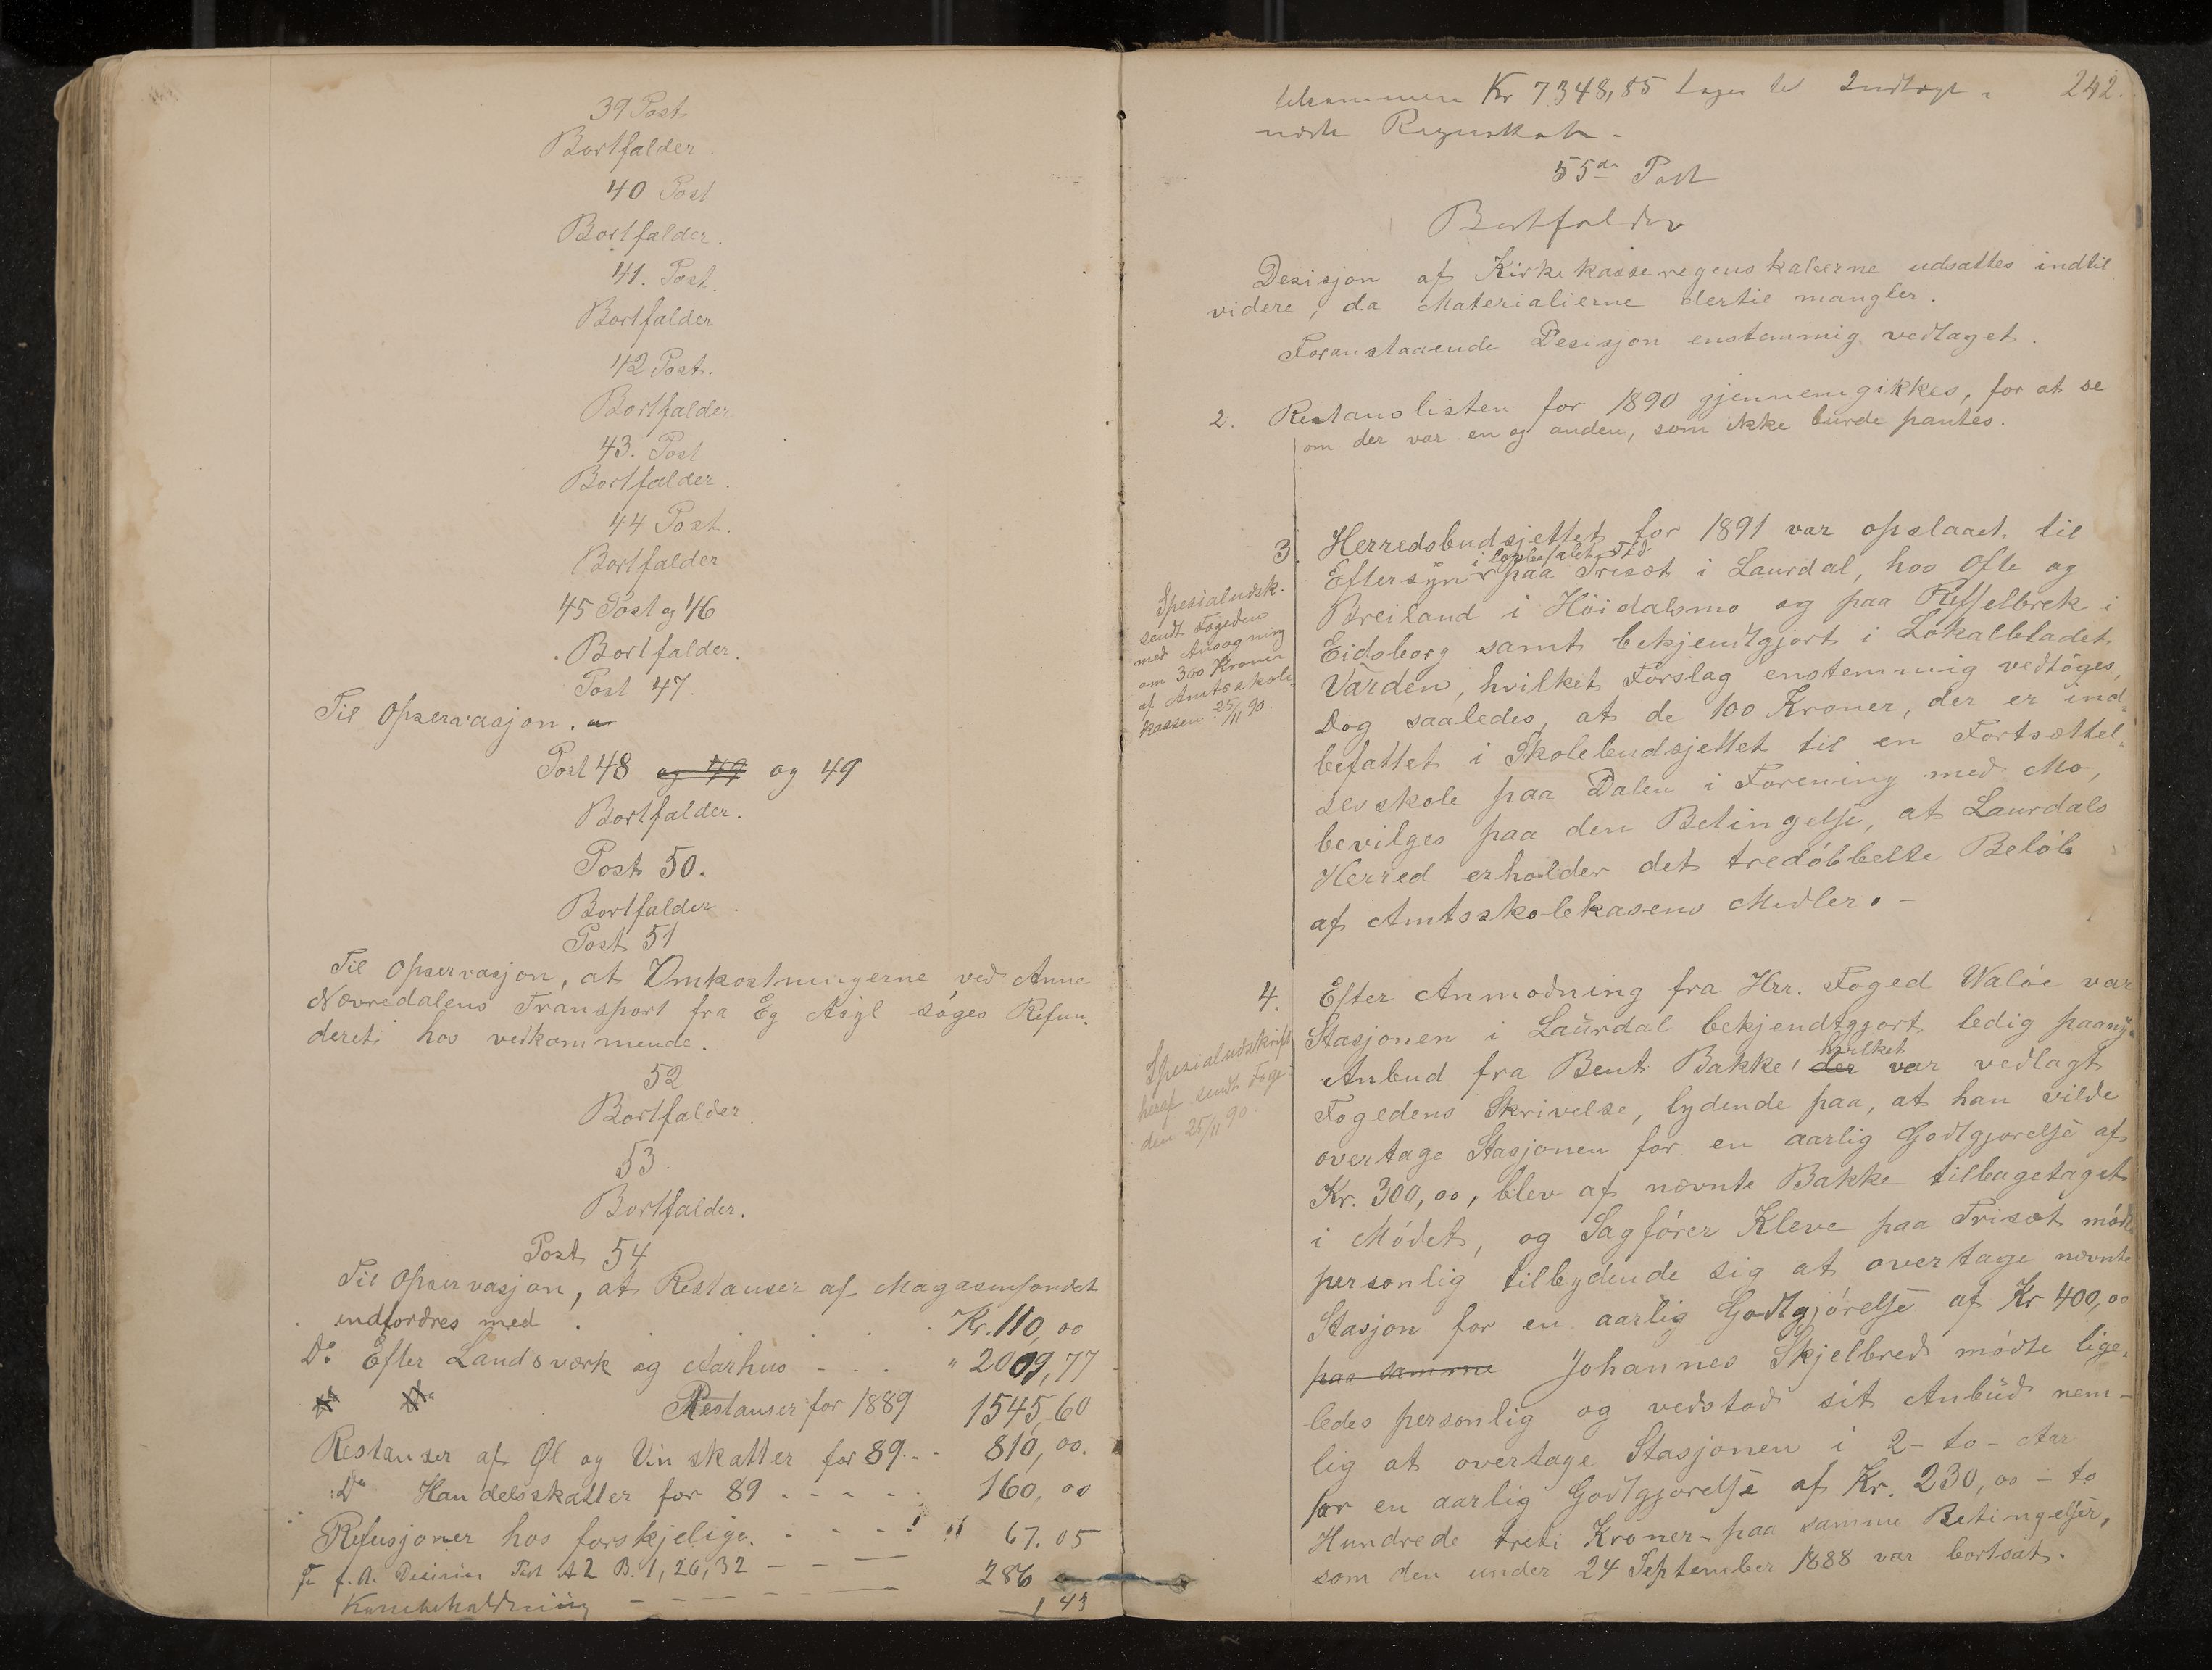 39 Post
Bortfalder.
40 Post
Bortfalder.
41. Post.
Bortfalder
42 Post.
Bortfalder
43. Post
Bortfalder.
44 Post.
Bortfalder
45 Post og 46
Bortfalder.
Post 47.
Til Opservasjon.
Post 48 og 49 og 49
Bortfalder.
Post 50.
Bortfalder.
Post 51
Til Opservasjon, at Omkostningerne ved Anne
Nævredalens Transport fra Eg Asyl söges Refun-
deret hos vedkommende.
52
Bortfalder.
53.
Bortfalder.
Post 54
Til Opservasjon, at Restanser af Magasinfondet
indfordres med Kr. 110,00
Do Efter Landsværk og Aarhus - - - " 2009,77
Restanser for 1889 1545,60
Restanser af Øl og Vin skatter for 89 - - 810,00.
Do Handelsskatter for 89 - - - - 160,00
Refusjoner hos forskjelige. - - - - " 67.05
Post 42 B. 1, 26, 32 - - - 286
Kassebeholdning - - - - 1 43
242.
tilsammen Kr 7348,85 tages til Indtægt i
næste Regnskab -
55de Post
Bortfalder
Desisjon af Kirkekasseregenskaberne udsattes indtil
videre, da Materialierne dertil mangler.
Foranstaaende Desisjon enstemmig vedtaget.
2. Restanslisten for 1890 gjennemgikkes, for at se
om der var en og anden, som ikke burde pantes.
3. Herredsbudsjettet for 1891 var opslaaet til
i lovbefalet Tid
Eftersyn paa Trisæt i Laurdal, hos Ofte og
Breiland i Höidalsmo og paa i
Eidsborg samt bekjendtgjort i Lokalbladet
Varden, hvilket Forslag enstemmig vedtöges,
Dog saaledes, at de 100 Kroner, der er ind-
befattet i Skolebudsjettet til en Fortsættel-
sesskole paa Dalen i Forening med Mo,
bevilges paa den Betingelse, at Laurdals
Herred erholder det tredobbelte Belöb
af Amtsskolekasens Midler. -
Spesialudsk.
sendt Fogeden
med Ansøgning
om 300 Kroner
af Amtsskole-
kassen. 25/11 90.
4. Efter Anmodning fra Hrr. Foged Walöe var
Stasjonen i Laurdal bekjendtgjort ledig paany.
hvilket
Anbud fra Bent Bakke, der var vedlagt
Fogedens Skrivelse, lydende paa, at han vilde
overtage Stasjonen for en aarlig Godtgjorelse af
Kr. 300,00, blev af nævnte Bakke tilbagetaget
i Mödet, og Sagförer Kleve paa Trisæt mödte
personlig tilbydende sig at overtage nævnte
Stasjon for en aarlig Godtgjörelse af Kr 400,00
paa samme Johannes Skjelbred mödte lige-
ledes personlig og vedstod sit Anbud nem-
lig at overtage Stasjonen i 2 - to - Aar
for en aarlig Godtgjorelse af Kr. 230,00 - to
Hundrede treti Kroner - paa samme Betingelser,
som den under 24 September 1888 var bortsat.
Spesialudskrift
heraf sendt Foge-
den 25/11 90.